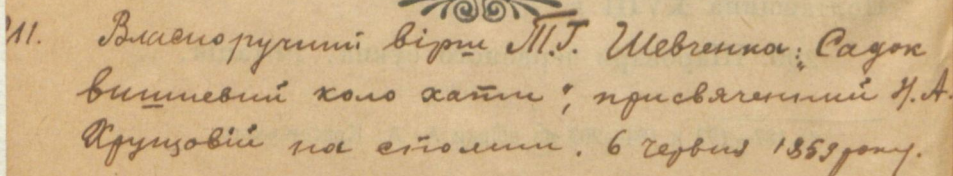 211. Власноручний вірш Т.Г. Шевченка: „Садок
вишневий коло хати", присвячений Н. А.
Хрущовій на спомин. 6 червня 1859 року.